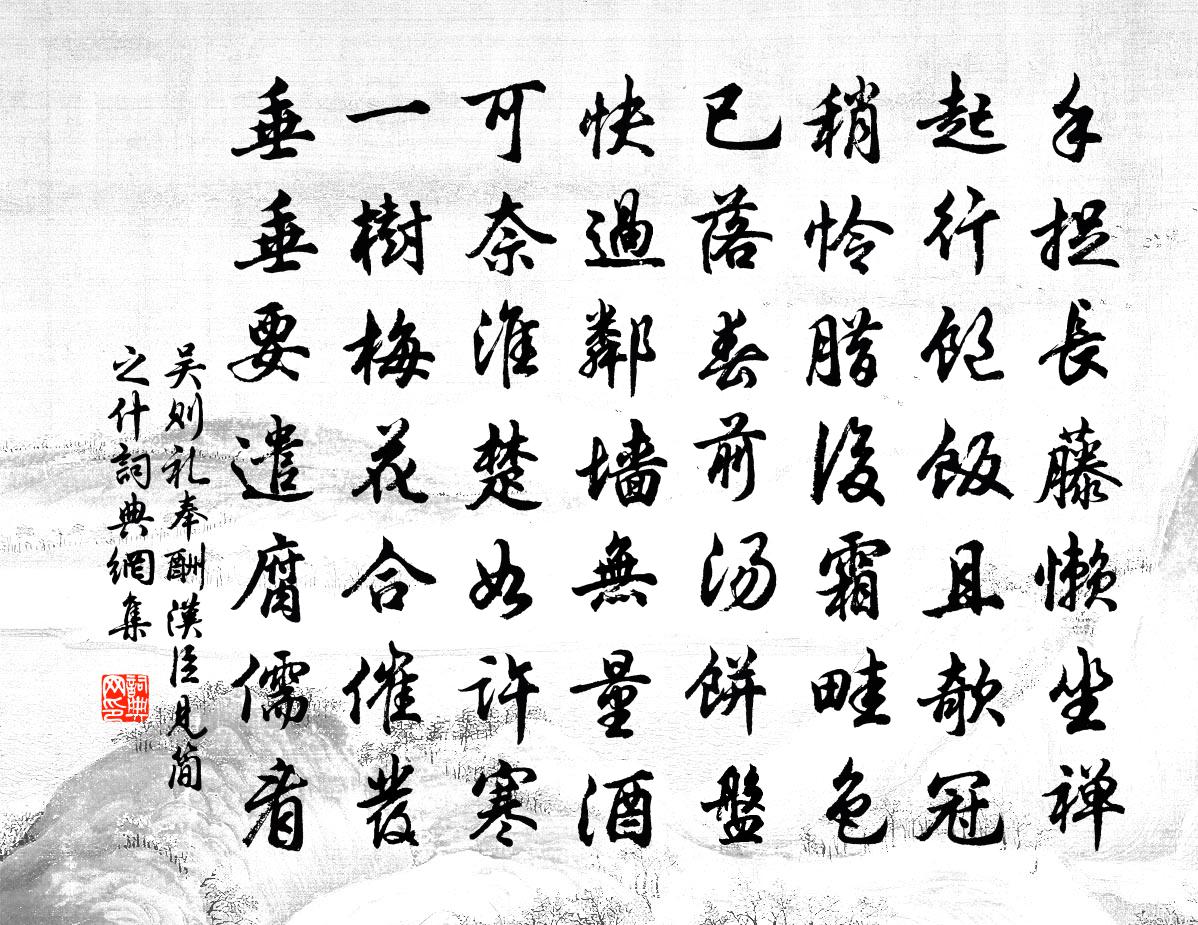 手捉長藤懶坐禅
起行飽飯且欹冠
稍怜腊後霜畦色
已落春前汤餅盤
快過鄰墙無量酒
可奈淮楚如許寒
一樹梅花合催發
垂垂要遣腐儒看
吴则礼奉酬漢臣見简
之什詞典網集
詞典网印